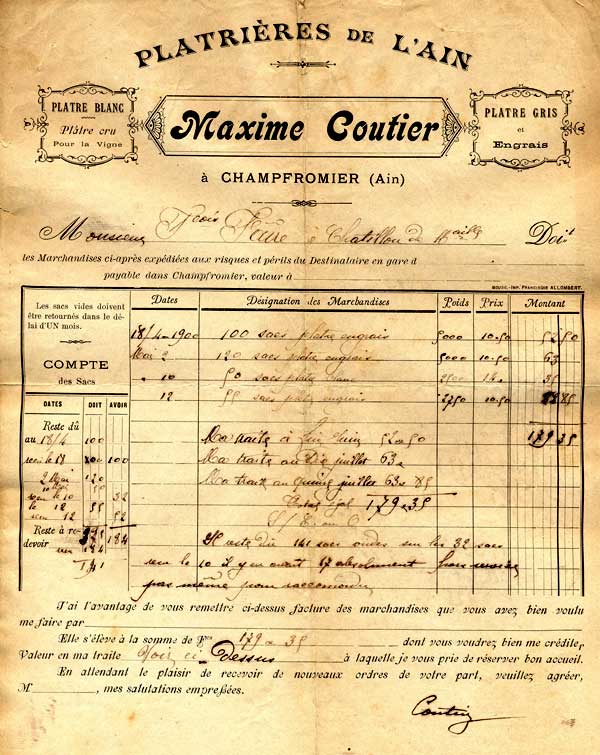 PLATRIÈRES DE L'AIN
PLATRE BLANC
Plâtre cru
Pour la Vigne
Maxime Coutier
PLATRE GRIS
et
Engrais
à CHAMPFROMIER (Ain)
Monsieur Fcois Favre à Chatillon de Doit
les Marchandises ci-après expédiées aux risques et périls du Destinataire en gare d
payable dans Champfromier, valeur à
BOURG.-IMP. FRANCISQUE ALLOMBERT.
Les sacs vides doivent être retournés dans le délai d'UN mois.
COMPTE
des Sacs
DATES DOIT AVOIR
Reste dû
au 18/4 100
100
2 Mai 120
10 50
le 10 32
le 12 55
12 52
Reste à redevoir 184
184
141
Dates Désignation des Marchandises Poids Prix Montant
18/4-1900 100 sacs platre engrais 5000 10.50 52 50
Mai 2 120 sacs platre engrais 10.50 63
" 10 50 sacs platre blanc 2500 14. 35
12 55 sacs platre engrais 2750 10.50 85
Ma traite à fin Juin 52.50 179 35
Ma traite au juillet 63.
Ma traite au quinze juillet 63. 85
Total égal 179.35
Il reste dû 141 sacs sur les 32 sacs
le 10 il y en avait 17 absolument hors
pas même pour raccomoder
J'ai l'avantage de vous remettre ci-dessus facture des marchandises que vous avez bien voulu
me faire par
Elle s'élève à la somme de Frs 179.35 dont vous voudrez bien me créditer,
Valeur en ma traite Voir ci-Dessus à laquelle je vous prie de réserver bon accueil.
En attendant le plaisir de recevoir de nouveaux ordres de votre part, veuillez agréer,
M , mes salutations empressées.
Coutier